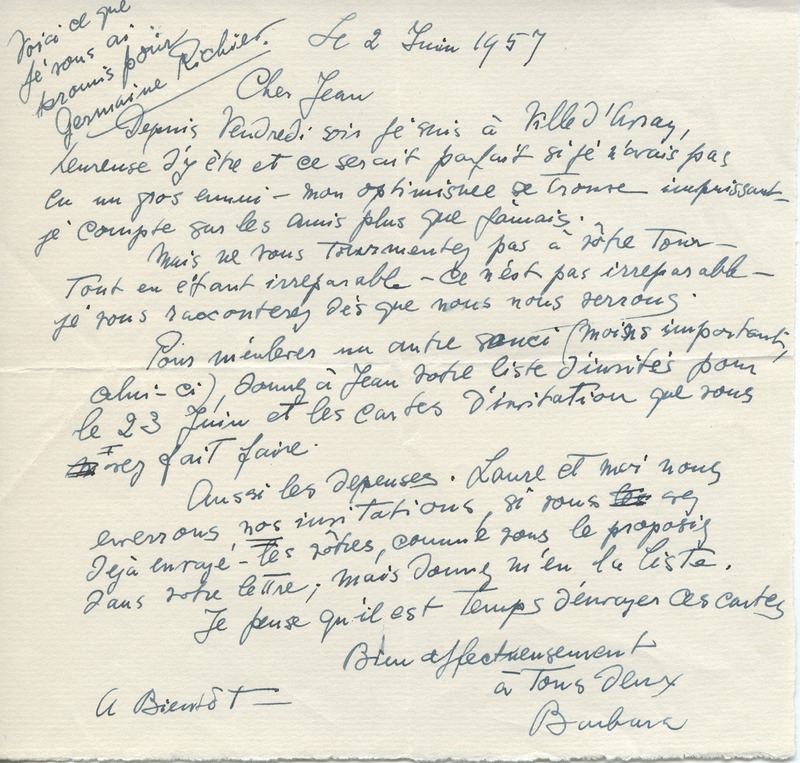 Voici ce que
je vous ai
promis pour
Germaine Richier.
Le 2 Juin 1957
Cher Jean
Depuis Vendredi soir je suis à Ville d'Avray,
heureuse d'y être et ce serait parfait si je n'avais pas
eu un gros ennui – mon optimisme se trouve impuissant –
je compte sur les amis plus que jamais.
Mais ne vous tourmentez pas à vôtre tour –
Tout en étant irreparable – ce n'est pas irreparable –
je vous raconterez dès que nous nous verrons.
Pour m'enlever un autre souci (moins important,
celui-ci), donnez à Jean votre liste d'invités pour
le 23 Juin et les cartes d'invitation que vous
avez fait faire.
Aussi les depenses. Laure et moi nous
enverrons nos invitations, si vous avez
dejà envoyé – les vôtres, comme vous le proposiez
dans votre lettre; mais donnez m'en la liste.
Je pense qu'il est temps d'envoyer ces cartes
Bien affectueusement
à Tous deux
A Bientôt –
Barbara